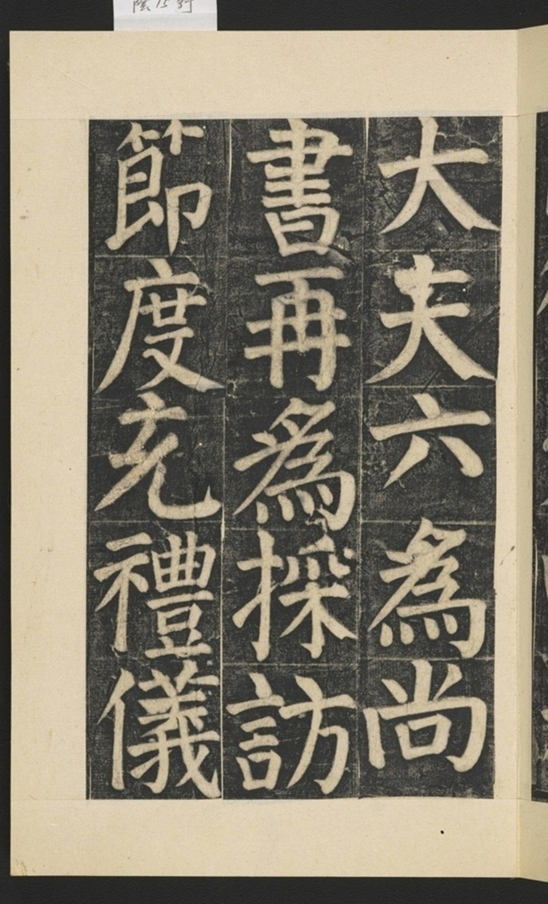 大夫六為尚
書再為採訪
節度充禮儀